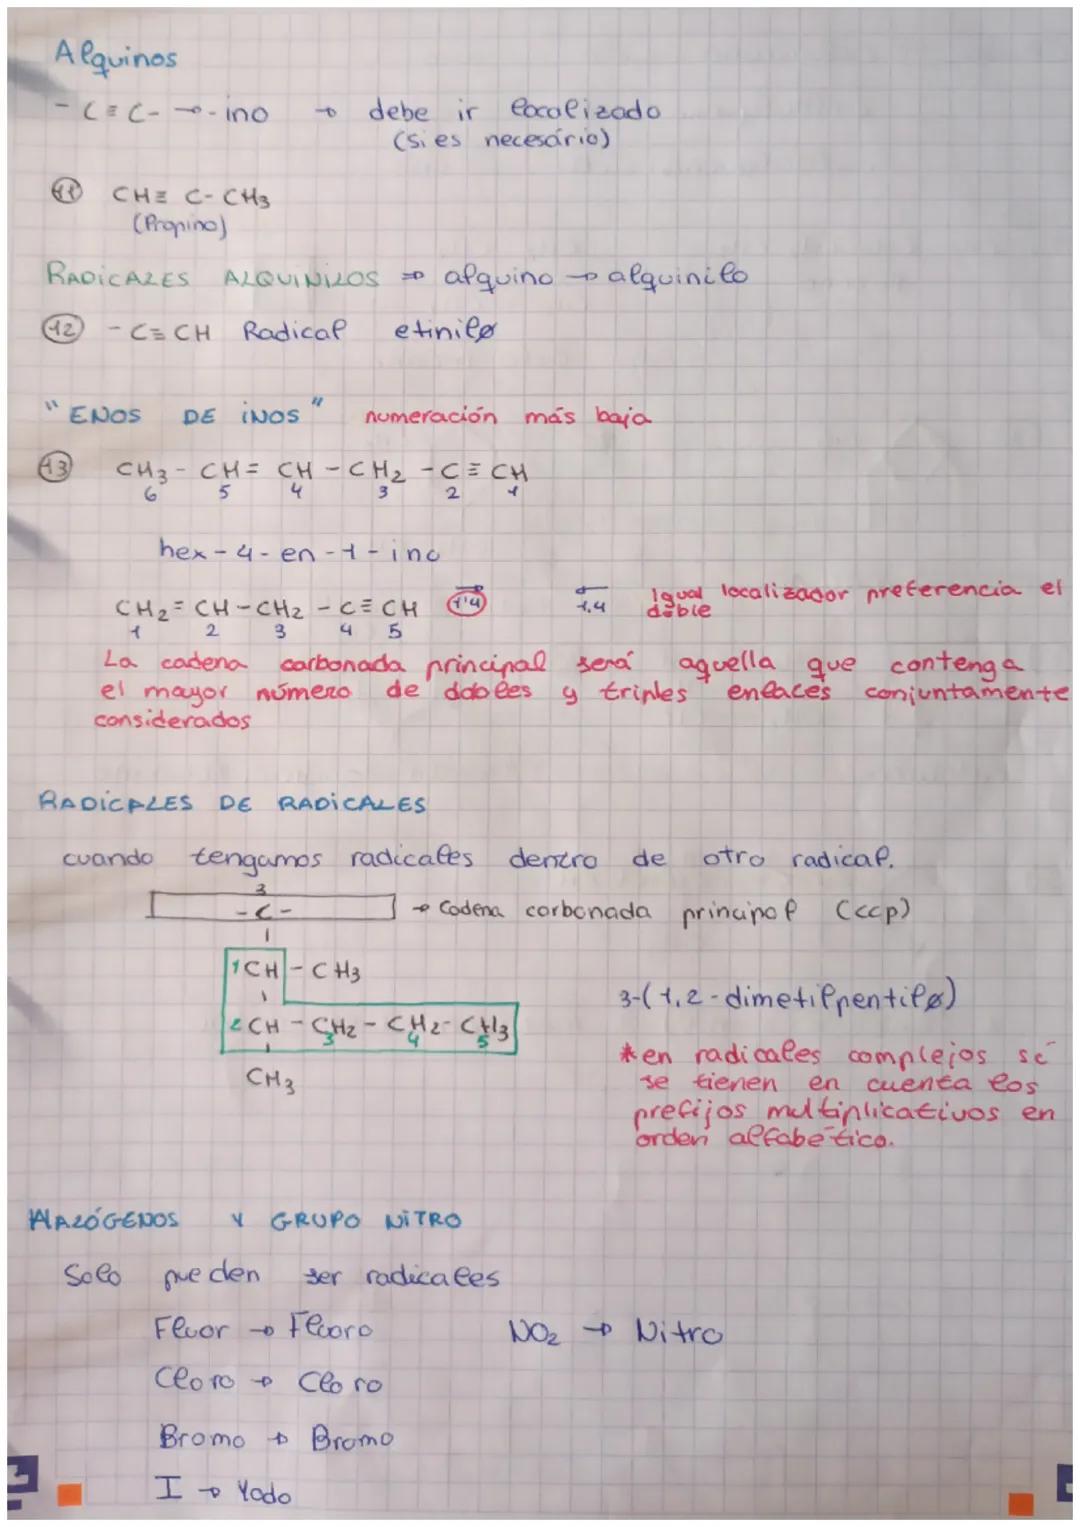 Alquinos
- C≡C- → -ino → debe ir localizado
(si es necesário)
11 CH≡ C- CH3
(Propino)
RADICALES ALQUINILOS ⇒ alquino → alquinilo
12 - C≡CH Radical etinilo
"ENOS DE INOS" numeración más baja
13 CH3 - CH = CH - CH2 - C ≡ CH
6 5 4 3 2 1
hex - 4 - en - 1 - ino
CH2 = CH - CH2 - C ≡ CH 1'4 1,4 Igual localizador preferencia el
doble
1 2 3 4 5
La cadena carbonada principal será aquella que contenga
el mayor número de dobles y triples enlaces conjuntamente
considerados
RADICALES DE RADICALES
cuando tengamos radicales dentro de otro radical.
3
- C - → Cadena carbonada principal (ccp)
1 CH - CH3
3-(1,2-dimetilpentilo)
2 CH - CH2 - CH2 - CH3
3 4 5
CH3
* en radicales complejos sé
se tienen en cuenta los
prefijos multiplicativos en
orden alfabético.
HALÓGENOS Y GRUPO NITRO
Solo pueden ser radicales
Fluor → Fluoro NO2 → Nitro
Cloro → Cloro
Bromo → Bromo
I → Yodo